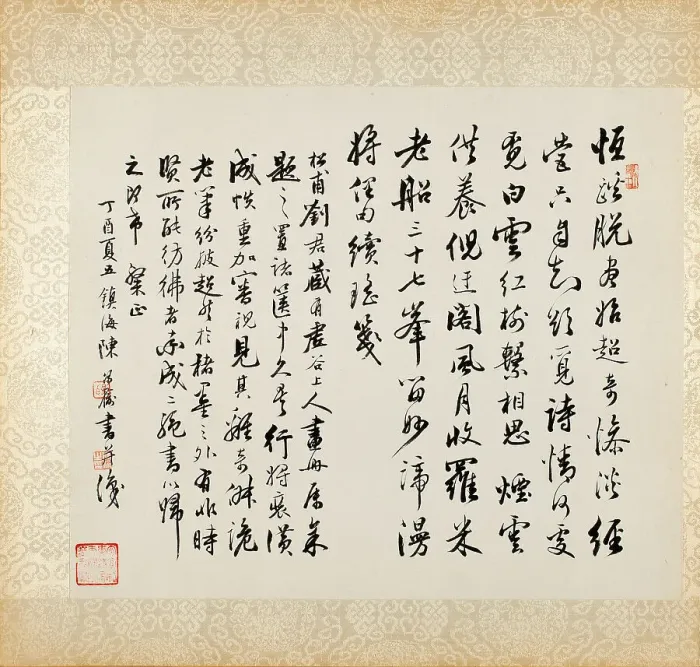 恆蹊脫盡始超奇慘淡經
營只自知欲覓詩情何處
覓白雲紅樹繫相思煙雲
供養倪迂閣風月收羅米
老船三十七峯留妙諦漫
將佳句續瑤箋
松甫劉君藏有虛谷上人畫冊屬余
題之置諸篋中久矣行將裝潢
成帙重加審視見其離奇詭
老筆紛披超然於楮墨之外有非時
賢所能彷彿者率成二絕書以歸
之即希 粲正
丁酉夏五鎮海陳書并識